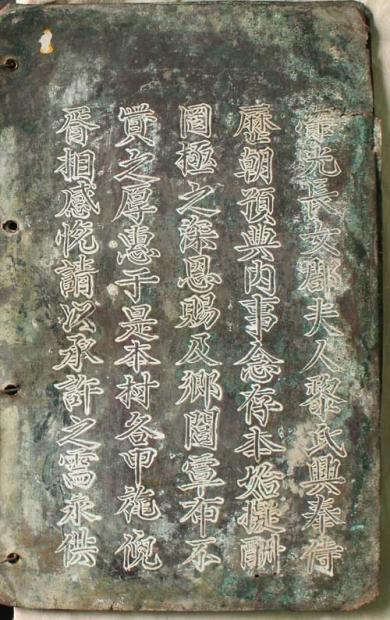 光長女郡夫人黎氏興奉侍
歷朝預典內事念存本始擬酬
罔極之深恩賜及鄉閭覃布不
貲之厚惠于是本村各甲旄倪
胥相感悅請以承許之需永供